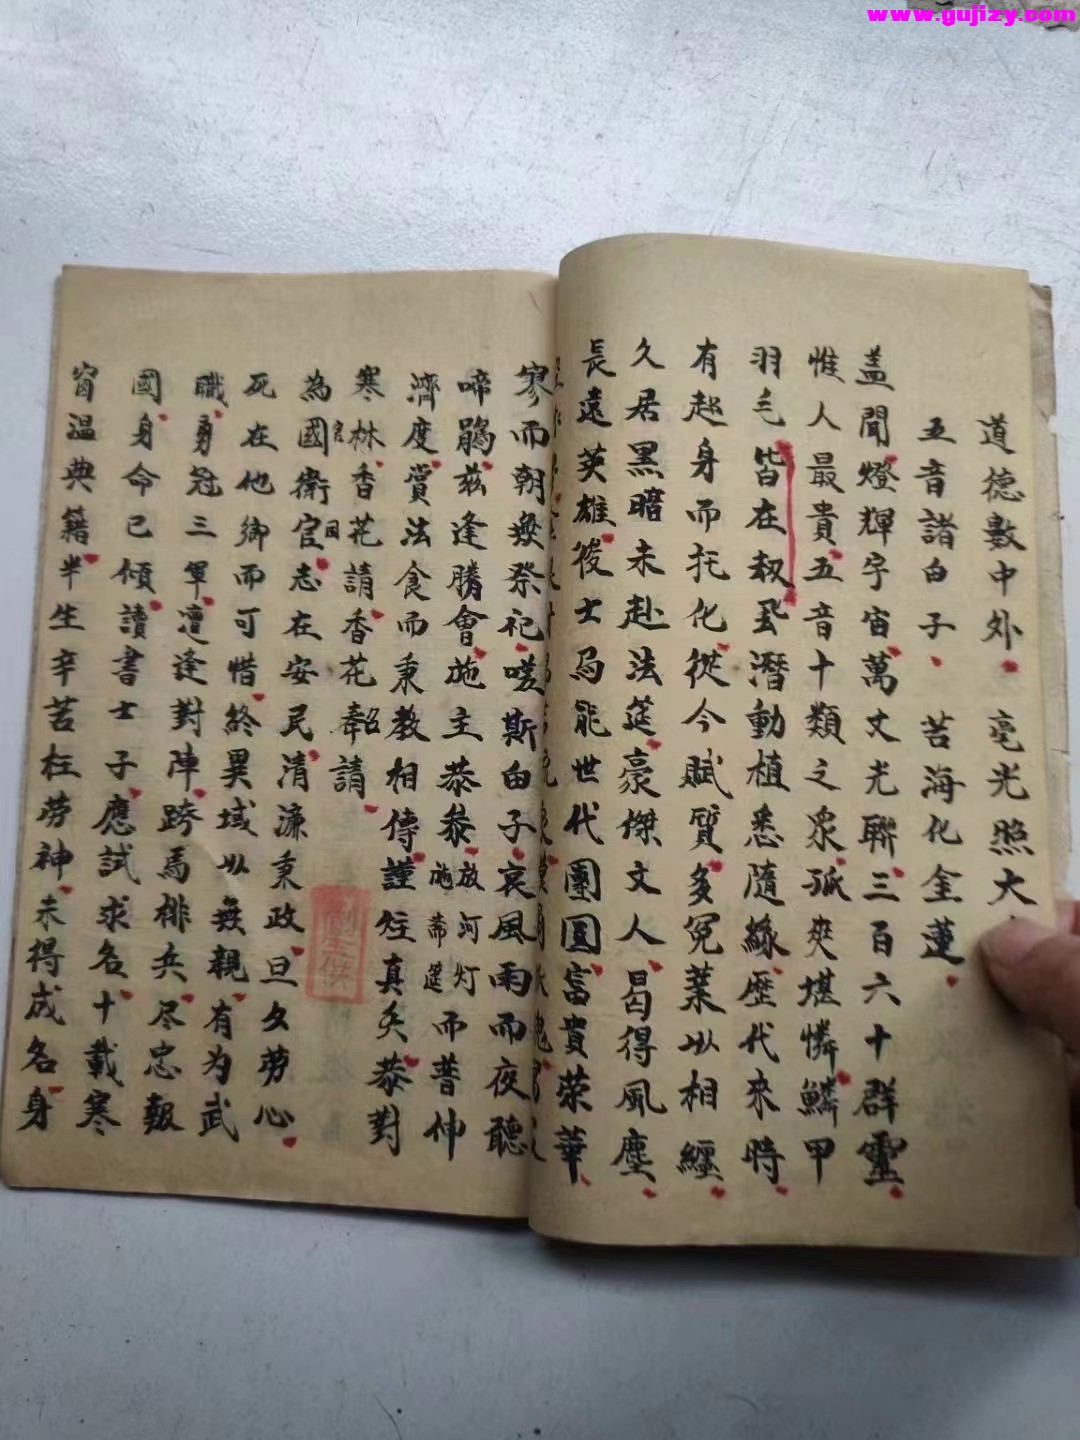 www.gujizy.com
道德數中外毫光照大
五音諸白子苦海化金蓮
盖聞燈輝宇宙萬丈光聯三百六十群靈
惟人最貴五音十類之眾孤爽堪憐鱗甲
羽毛皆在劫蛋潛動植悉隨緣歷代來時
有起身而托化從今賦質多冤業以相纏
久居黑暗未赴法筵豪傑文人曷得風塵
長遠英雄俊士焉能世代團圓富貴榮華
寥而朝無祭祀嗟斯白子哀風雨而夜聽
啼鵑茲逢勝會施主恭忝放河灯施蒂筵而普伸
濟度賞法食而秉教相傳謹炷真香恭對
寒林香花請香花奉請
為國衛官志在安民清濂秉政旦夕勞心
死在他鄉而可惜終異域以無親有为武
職勇冠三軍遭逢對陣跨馬排兵尽忠報
國身命已傾讀書士子應試求名十載寒
窗温典籍半生辛苦枉劳神未得成名身